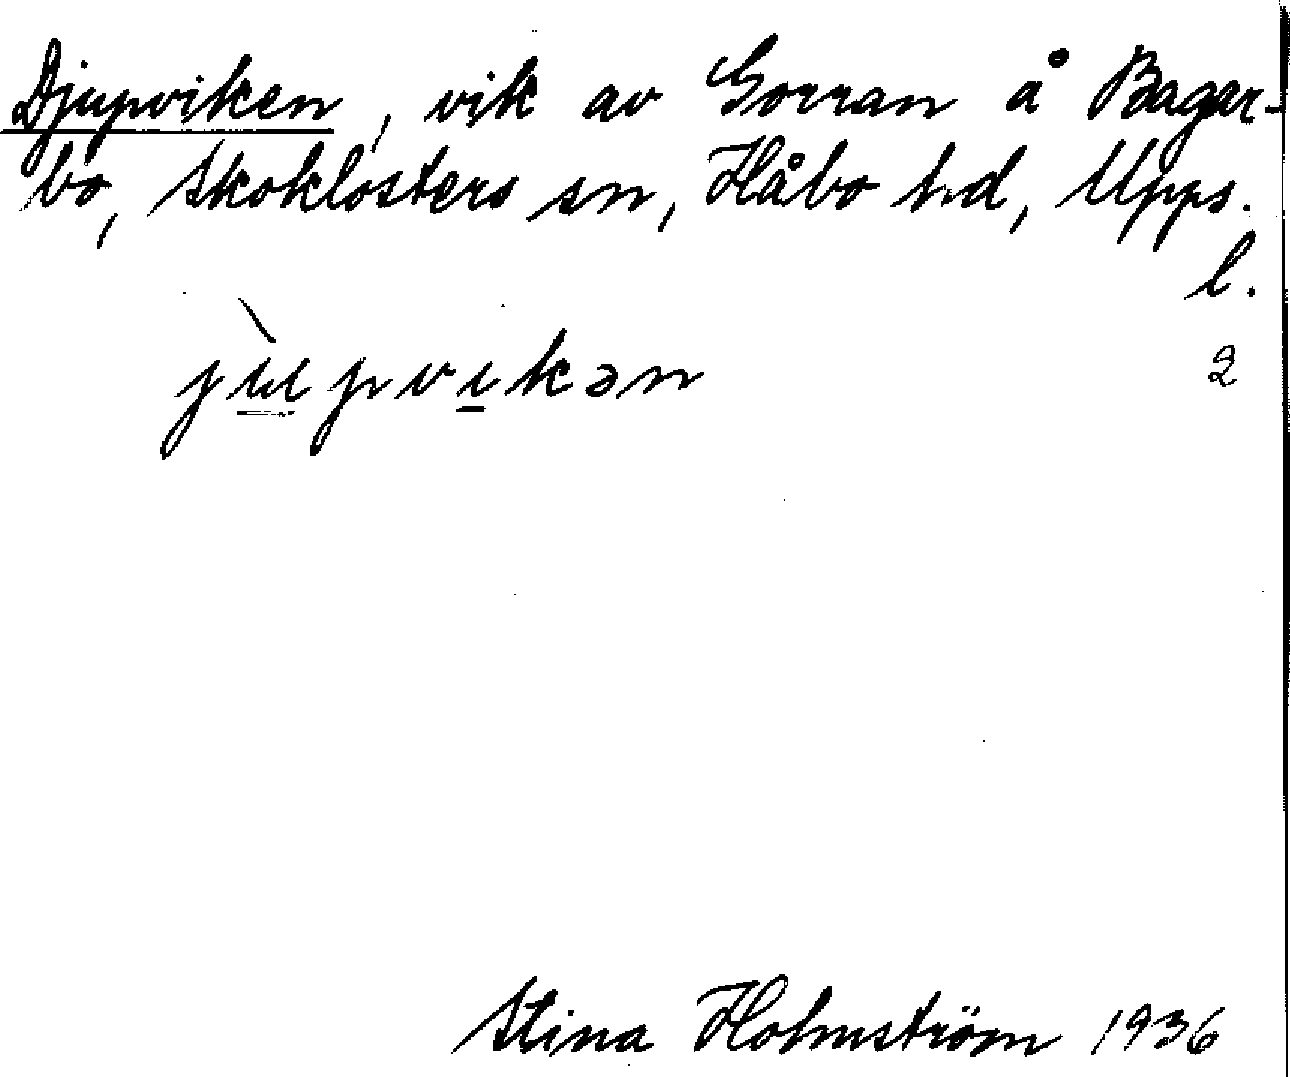 Djupviken, vik av Gorran å Bager-
bo, Skoklosters sn, Håbo hd, Upps.
l.
jùpvikən 2
Stina Holmström 1936